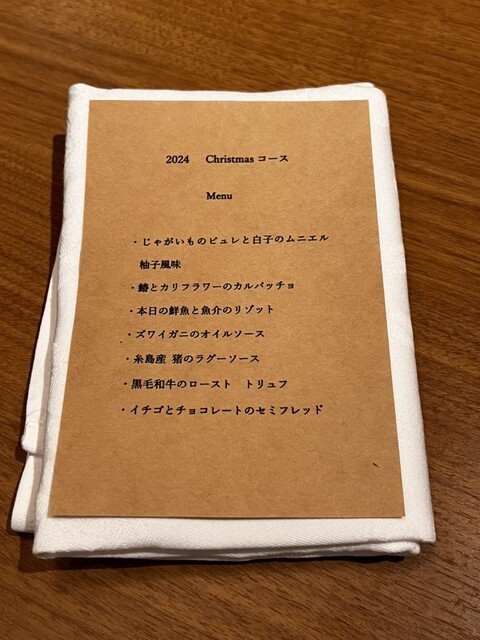 2024 Christmas コース
Menu
・じゃがいものピュレと白子のムニエル
柚子風味
・鰆とカリフラワーのカルパッチョ
・本日の鮮魚と魚介のリゾット
・ズワイガニのオイルソース
・糸島産 猪のラグーソース
・黒毛和牛のロースト トリュフ
・イチゴとチョコレートのセミフレッド